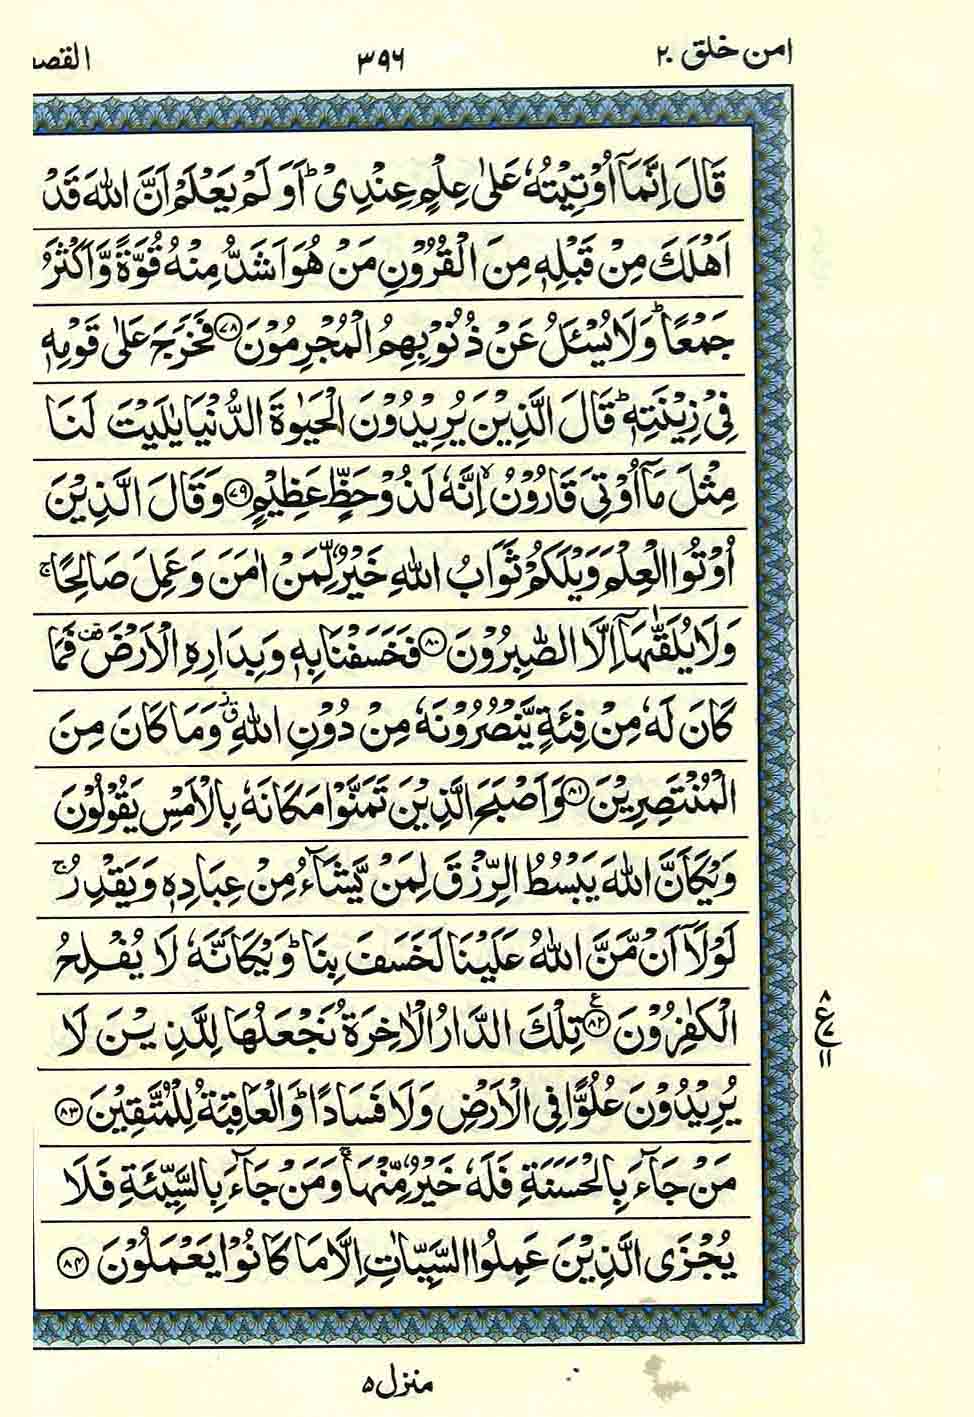 امن خلق ۲۰ ۳۹۶ القصص
قَالَ اِنَّمَاۤ اُوْتِیْتُهٗ عَلٰی عِلْمٍ عِنْدِیْ ؕ اَوَ لَمْ یَعْلَمْ اَنَّ اللّٰهَ قَدْ
اَهْلَكَ مِنْ قَبْلِهٖ مِنَ الْقُرُوْنِ مَنْ هُوَ اَشَدُّ مِنْهُ قُوَّةً وَّاَكْثَرُ
جَمْعًا ؕ وَلَا یُسْـَٔلُ عَنْ ذُنُوْبِهِمُ الْمُجْرِمُوْنَ ﴿۷۸﴾ فَخَرَجَ عَلٰی قَوْمِهٖ
فِیْ زِیْنَتِهٖ ؕ قَالَ الَّذِیْنَ یُرِیْدُوْنَ الْحَیٰوةَ الدُّنْیَا یٰلَیْتَ لَنَا
مِثْلَ مَاۤ اُوْتِیَ قَارُوْنُ ۙ اِنَّهٗ لَذُوْ حَظٍّ عَظِیْمٍ ﴿۷۹﴾ وَقَالَ الَّذِیْنَ
اُوْتُوا الْعِلْمَ وَیْلَكُمْ ثَوَابُ اللّٰهِ خَیْرٌ لِّمَنْ اٰمَنَ وَعَمِلَ صَالِحًا ۚ
وَلَا یُلَقّٰىهَاۤ اِلَّا الصّٰبِرُوْنَ ﴿۸۰﴾ فَخَسَفْنَا بِهٖ وَبِدَارِهِ الْاَرْضَ ۫ فَمَا
كَانَ لَهٗ مِنْ فِئَةٍ یَّنْصُرُوْنَهٗ مِنْ دُوْنِ اللّٰهِ ۗ وَمَا كَانَ مِنَ
الْمُنْتَصِرِیْنَ ﴿۸۱﴾ وَاَصْبَحَ الَّذِیْنَ تَمَنَّوْا مَكَانَهٗ بِالْاَمْسِ یَقُوْلُوْنَ
وَیْكَاَنَّ اللّٰهَ یَبْسُطُ الرِّزْقَ لِمَنْ یَّشَآءُ مِنْ عِبَادِهٖ وَیَقْدِرُ ۚ
لَوْلَاۤ اَنْ مَّنَّ اللّٰهُ عَلَیْنَا لَخَسَفَ بِنَا ؕ وَیْكَاَنَّهٗ لَا یُفْلِحُ
الْكٰفِرُوْنَ ﴿۸۲﴾ تِلْكَ الدَّارُ الْاٰخِرَةُ نَجْعَلُهَا لِلَّذِیْنَ لَا
یُرِیْدُوْنَ عُلُوًّا فِی الْاَرْضِ وَلَا فَسَادًا ؕ وَالْعَاقِبَةُ لِلْمُتَّقِیْنَ ﴿۸۳﴾
مَنْ جَآءَ بِالْحَسَنَةِ فَلَهٗ خَیْرٌ مِّنْهَا ۚ وَمَنْ جَآءَ بِالسَّیِّئَةِ فَلَا
یُجْزَی الَّذِیْنَ عَمِلُوا السَّیِّاٰتِ اِلَّا مَا كَانُوْا یَعْمَلُوْنَ ﴿۸۴﴾
۸ ع ۷ ۱۱
منزل ۵